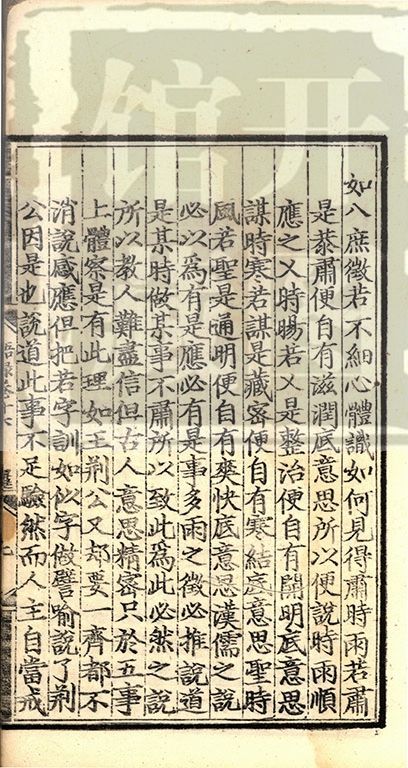 如八庶徵若不細心體識如何見得肅時雨若肅
是恭肅便自有滋潤底意思所以便說時雨順
應之乂時暘若乂是整治便自有開明底意思
謀時寒若謀是藏密便自有寒結底意思聖時
風若聖是通明便自有爽快底意思漢儒之說
必以爲有是應必有是事多雨之徵必推說道
是某時做某事不肅所以致此爲此必然之說
所以教人難盡信但古人意思精密只於五事
上體察是有此理如王荆公又却要一齊都不
消說感應但把若字訓如似字做譬喻說了荆
公因是也說道此事不足驗然而人主自當戒